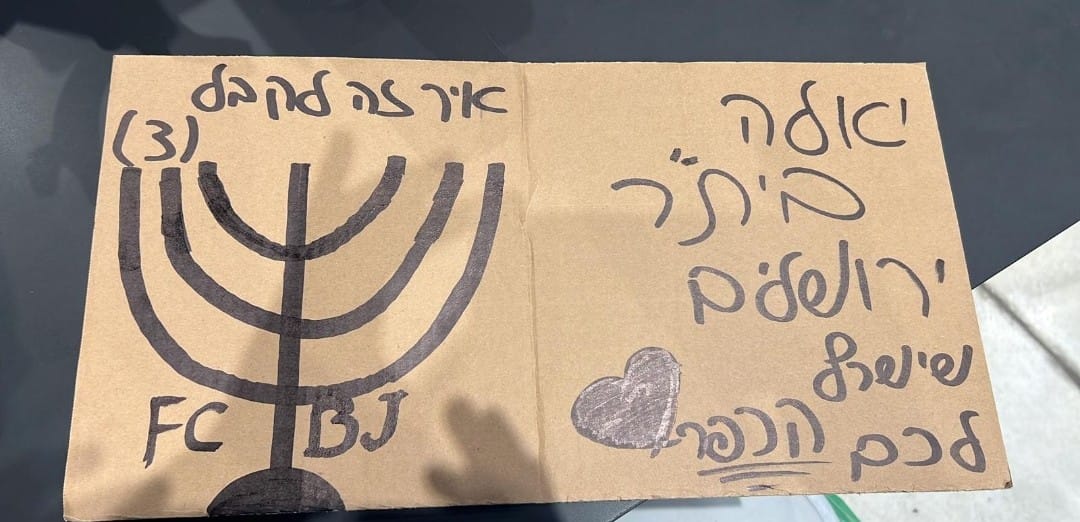 יאלה
בית"ר
ירושלים
שישרף
לכם הכפר
איך זה לקבל
(3)
FC BJ